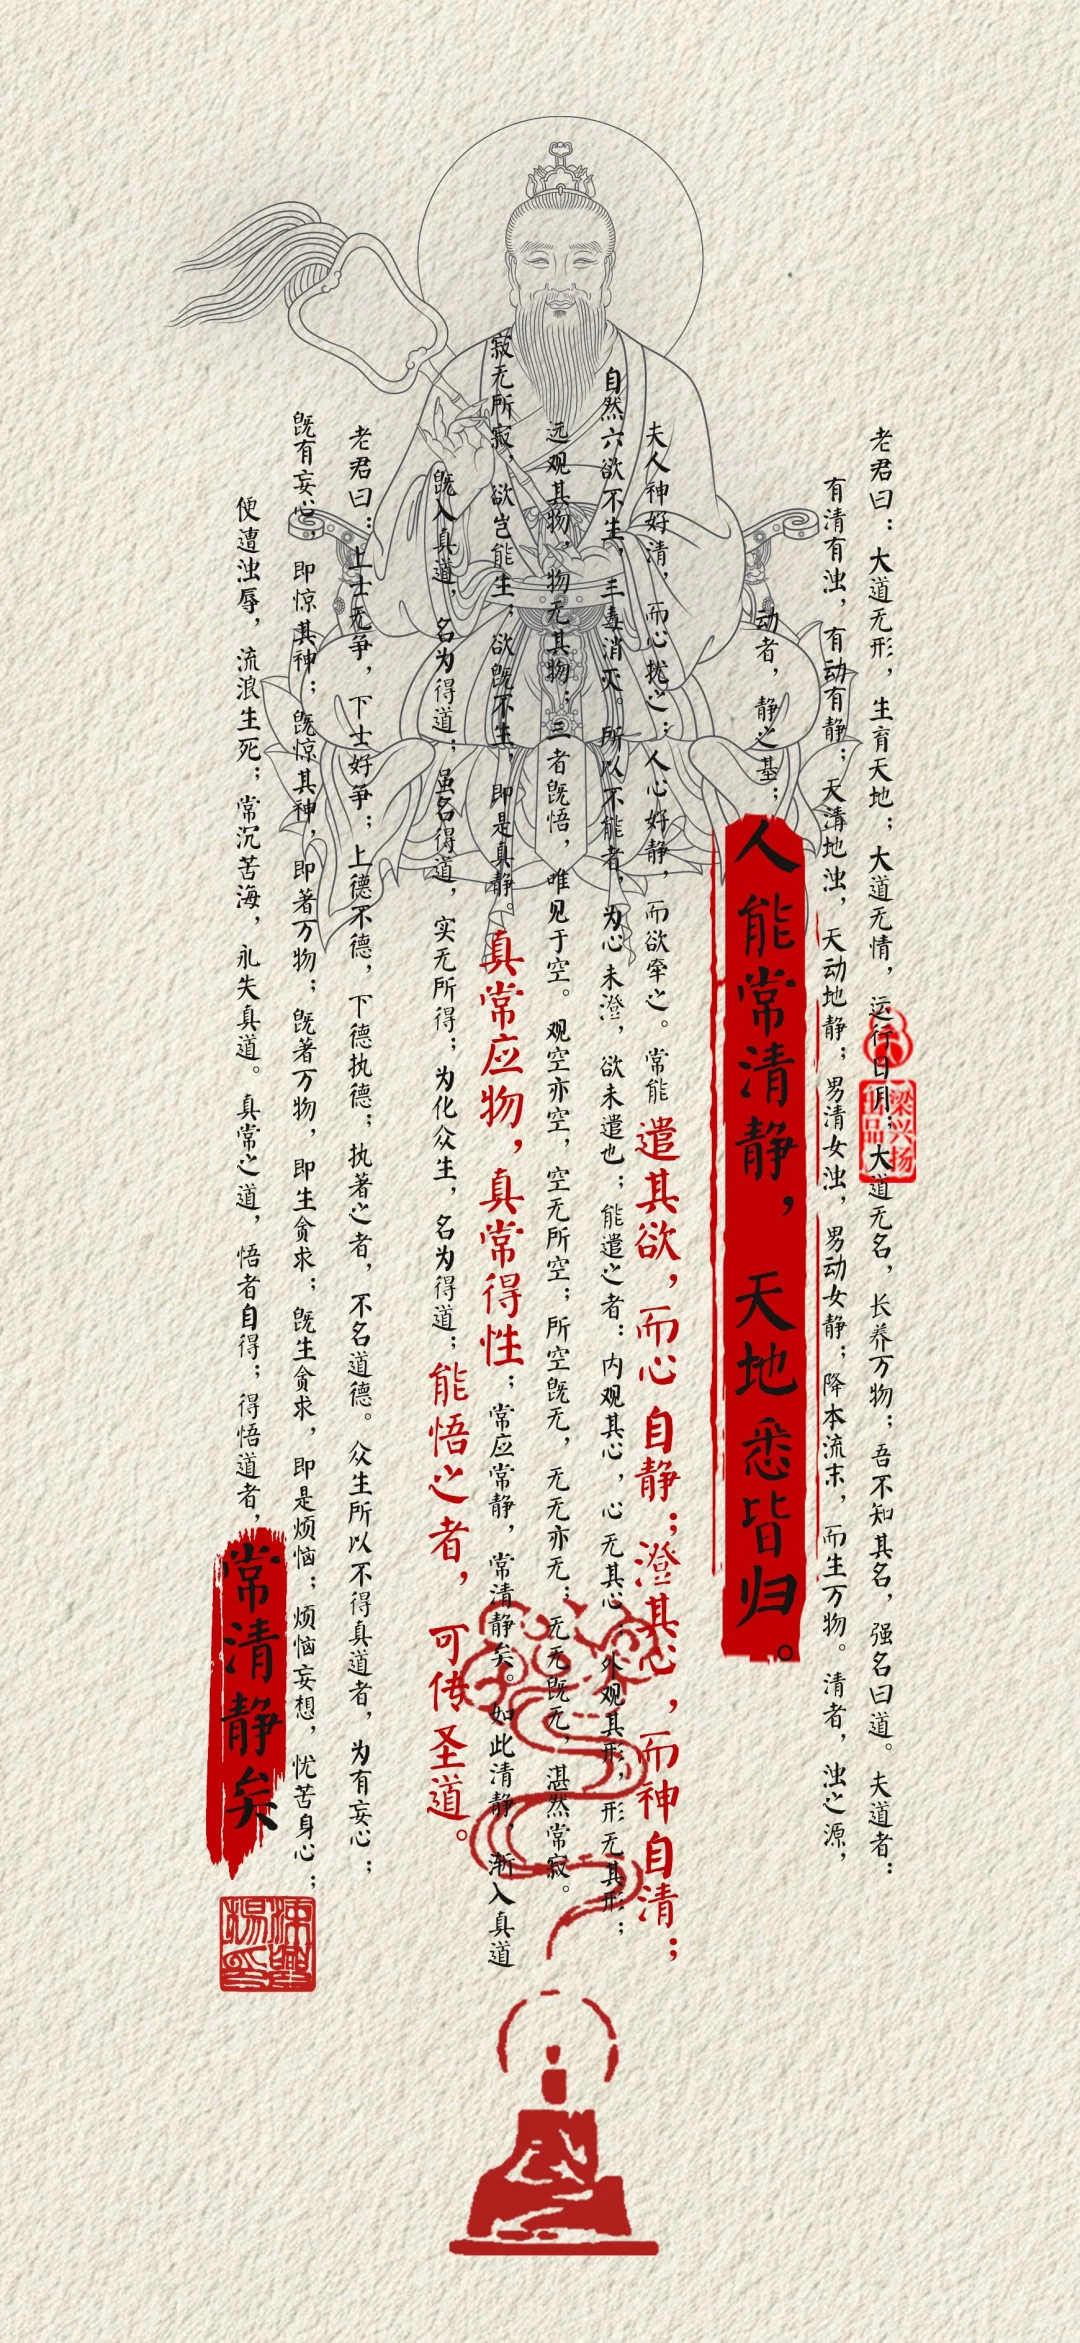 老君曰：大道无形，生育天地；大道无情，运行日月；大道无名，长养万物；吾不知其名，强名曰道。夫道者：
有清有浊，有动有静；天清地浊，天动地静；男清女浊，男动女静；降本流末，而生万物。清者，浊之源，
动者，静之基；人能常清静，天地悉皆归。
夫人神好清，而心扰之；人心好静，而欲牵之。常能遣其欲，而心自静；澄其心，而神自清；
自然六欲不生，三毒消灭。所以不能者，为心未澄，欲未遣也；能遣之者：内观其心，心无其心；外观其形，形无其形；
远观其物，物无其物；三者既悟，唯见于空。观空亦空，空无所空；所空既无，无无亦无；无无既无，湛然常寂。
寂无所寂，欲岂能生；欲既不生，即是真静。真常应物，真常得性；常应常静，常清静矣。如此清静，渐入真道
既入真道，名为得道；虽名得道，实无所得；为化众生，名为得道；能悟之者，可传圣道。
老君曰：上士无争，下士好争；上德不德，下德执德；执著之者，不名道德。众生所以不得真道者，为有妄心；
既有妄心，即惊其神；既惊其神，即著万物；既著万物，即生贪求；既生贪求，即是烦恼；烦恼妄想，忧苦身心；
便遭浊辱，流浪生死；常沉苦海，永失真道。真常之道，悟者自得；得悟道者，常清静矣
梁兴扬
出品